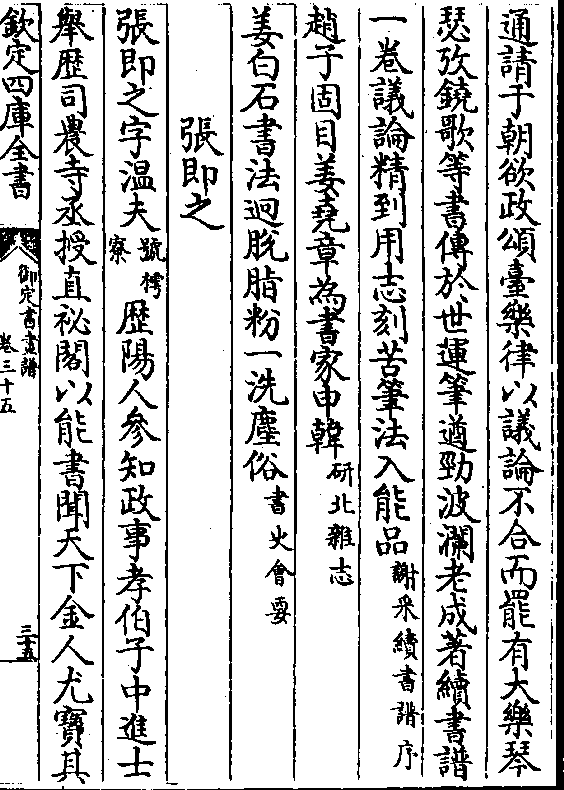 通請于朝欲政頌臺樂律以議論不合而罷有大樂琴
瑟攷鐃歌等書傳於世運筆遒勁波瀾老成著續書譜
一卷議論精到用志刻苦筆法入能品謝采續書譜序
趙子固目姜堯章為書家申韓研北雜志
姜白石書法迥脫脂粉一洗塵俗書史會要
張即之
張即之字温夫號樗寮歷陽人參知政事孝伯子中進士
舉歷司農寺丞授直祕閣以能書聞天下金人尤寶其
欽定四庫全書
御定書畫譜
卷三十五
三五